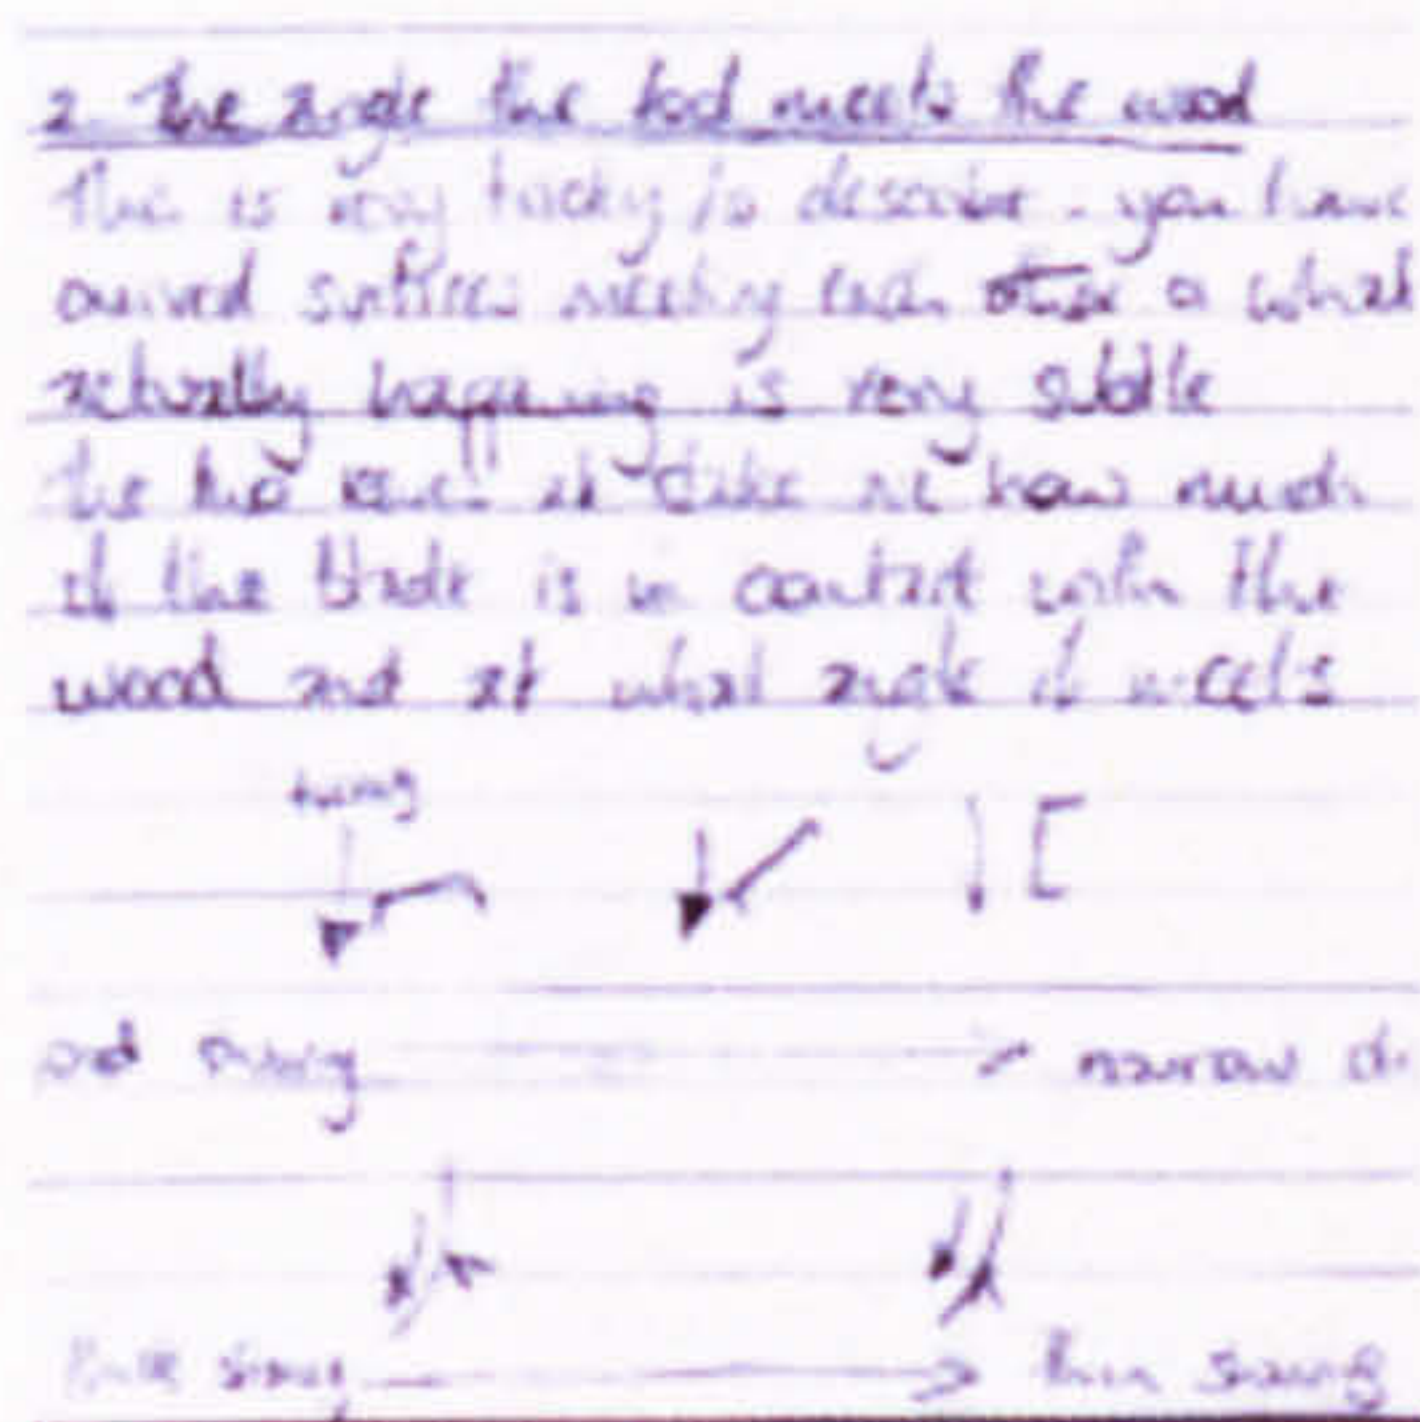 2. the angle the tool meets the wood
This is very tricky to describe - you have
curved surfaces meeting each other a what
actually happening is very subtle
the two at stake are how much
of the blade is in contact with the
wood and at what angle it meets
narrow
thin